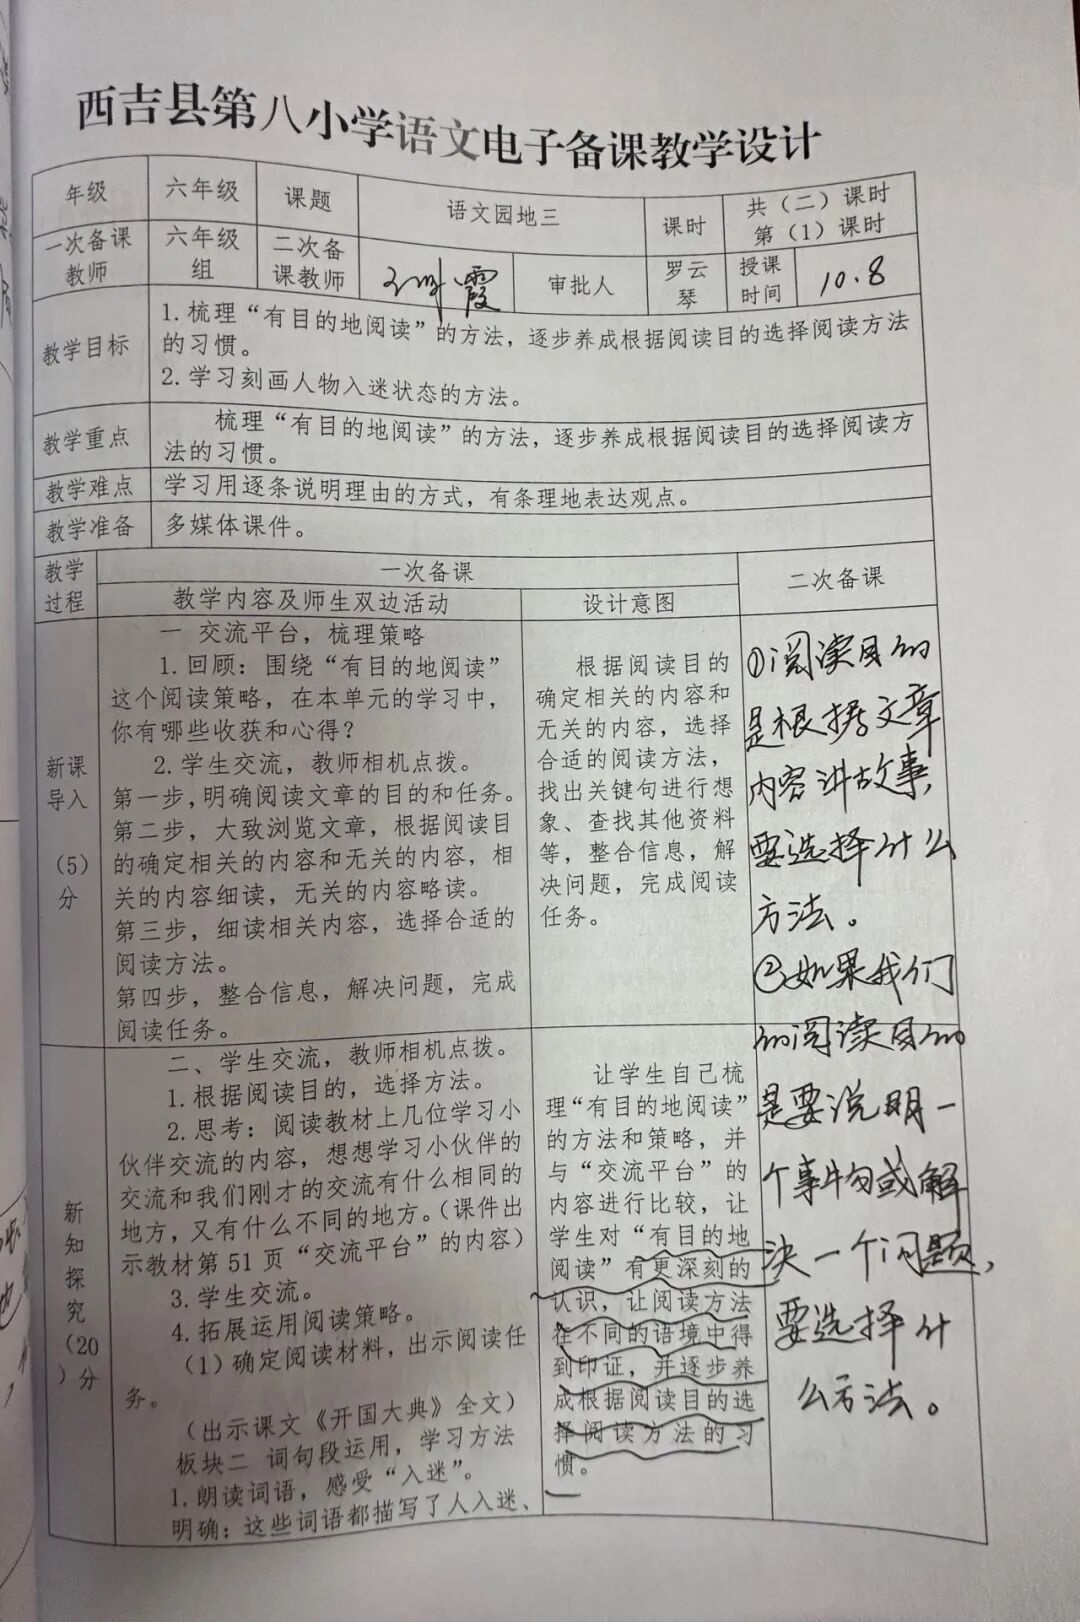 西吉县第八小学语文电子备课教学设计
年级 六年级 课题 语文园地三 课时 共（二）课时
第（1）课时
一次备课 六年级 二次备 霞 审批人 罗云 授课 10.8
教师 组 课教师 琴 时间
教学目标
1.梳理“有目的地阅读”的方法，逐步养成根据阅读目的选择阅读方法
的习惯。
2.学习刻画人物入迷状态的方法。
教学重点
梳理“有目的地阅读”的方法，逐步养成根据阅读目的选择阅读方
法的习惯。
教学难点 学习用逐条说明理由的方式，有条理地表达观点。
教学准备 多媒体课件。
教学
过程
一次备课 二次备课
教学内容及师生双边活动 设计意图
新课
导入
（5）
分
一 交流平台，梳理策略
1.回顾：围绕“有目的地阅读”
这个阅读策略，在本单元的学习中，
你有哪些收获和心得？
2.学生交流，教师相机点拨。
第一步，明确阅读文章的目的和任务。
第二步，大致浏览文章，根据阅读目
的确定相关的内容和无关的内容，相
关的内容细读，无关的内容略读。
第三步，细读相关内容，选择合适的
阅读方法。
第四步，整合信息，解决问题，完成
阅读任务。
根据阅读目的
确定相关的内容和
无关的内容，选择
合适的阅读方法，
找出关键句进行想
象、查找其他资料
等，整合信息，解
决问题，完成阅读
任务。
①阅读目的
是根据文章
内容讲故事，
要选择什么
方法。
②如果我们
的阅读目的
是要说明一
个事物或解
决一个问题，
要选择什
么方法。
新
知
探
究
（20
）分
二、学生交流，教师相机点拨。
1.根据阅读目的，选择方法。
2.思考：阅读教材上几位学习小
伙伴交流的内容，想想学习小伙伴的
交流和我们刚才的交流有什么相同的
地方，又有什么不同的地方。（课件出
示教材第51页“交流平台”的内容）
3.学生交流。
4.拓展运用阅读策略。
（1）确定阅读材料，出示阅读任
务。
（出示课文《开国大典》全文）
板块二 词句段运用，学习方法
1.朗读词语，感受“入迷”。
明确：这些词语都描写了人入迷、
让学生自己梳
理“有目的地阅读”
的方法和策略，并
与“交流平台”的
内容进行比较，让
学生对“有目的地
阅读”有更深刻的
认识，让阅读方法
在不同的语境中得
到印证，并逐步养
成根据阅读目的选
择阅读方法的习
惯。